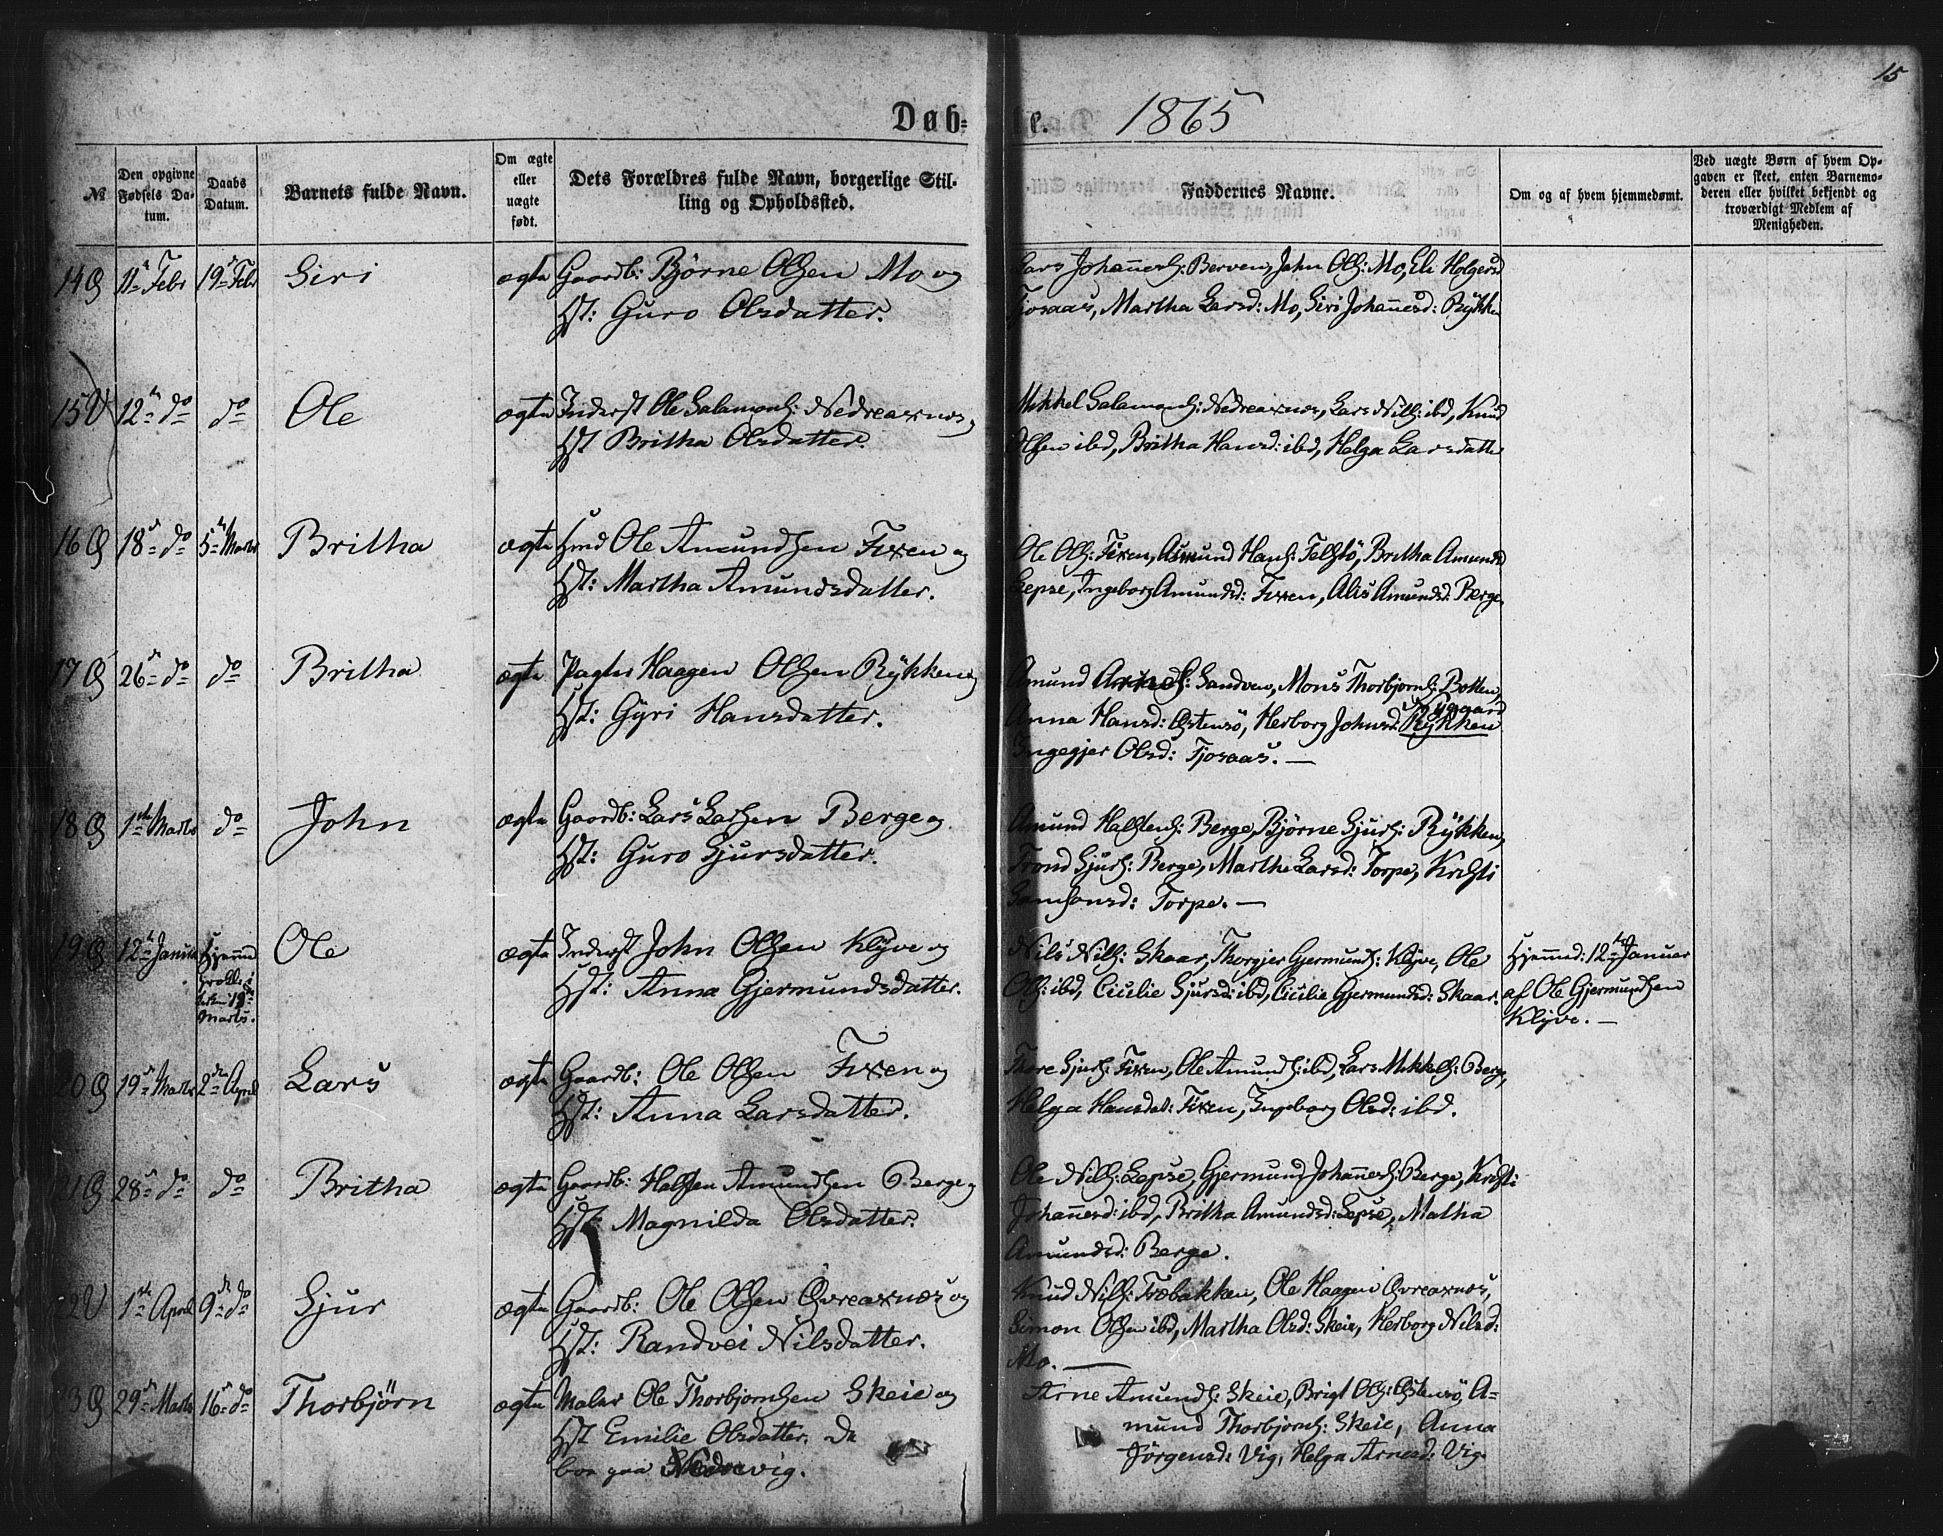 15
Døbte. 1865
№
Den opgivne Fødsels Datum.
Daabs Datum.
Barnets fulde Navn.
Om ægte eller uægte født.
Dets Forældres fulde Navn, borgerlige Stilling og Opholdssted.
Faddernes Navne.
Om og af hvem hjemmedømt.
Ved uægte Børn af hvem Opgaven er skeet, enten Barnemoderen eller hvilket bekjendt og troværdigt Medlem af Menigheden.
14 Ø 11te Febr 19de Febr Siri ægte Gaardb: Björne Olsen Mo og
Hst: Guro Olsdatter.
Lars Johanness: Berven, John Ols: Mo, Eli Holgersd
Fjosaas, Martha Larsd: Mo, Siri Johannesd: Rÿkken
15 V 12te do do Ole ægte Inderst Ole Salamons: Nedreaxnes,
Hst Britha Olsdatter.
Mikkel Salamons: Nedreaxnes, Lars Nils: ibd, Knud
Olsen ibd, Britha Hansd: ibd, Helga Larsdatter
16 Ø 18de do 5te Marts Britha ægte Hmd Ole Amundsen Fixen og
Hst: Martha Amundsdatter.
Ole Ols: Fixen, Asmund Hans: Telstö, Britha Amundsd
Lepse, Ingeborg Amundsd: Fixen, Alis Amundsd: Berge.
17 Ø 26de do do Britha ægte Pagter Haagen Olsen Rÿkken og
Hst: Gÿri Hansdatter.
Amund Arnes: Sandven, Mons Thorbjorns: Botten,
Nÿgaard
Anna Hansd: Östensö, Herborg Johnsd: Rÿkken
Ingegjer Olsd: Fjosaas. —
18 Ø 1ste Marts do John ægte Gaardb: Lars Larsen Berge og
Hst: Guro Sjursdatter.
Amund Halstens: Berge, Björne Sjurs: Rÿkken,
Trond Sjurs: Berge, Martha Larsd: Torpe, Kristi
Samsonsd: Torpe. —
19 Ø 12te Januar Hjemmed
i Kirken 19de
Marts. Ole ægte Inderst John Olsen Klÿve og
Hst: Anna Gjermundsdatter.
Nils Nils: Skaar, Thorgjer Gjermunds: Klÿve, Ole
Ols: ibd, Cicilie Sjursd: ibd, Cicilie Gjermundsd: Skaar.
Hjemmed: 12te Januar
af Ole Gjermundsen
Klÿve. —
20 Ø 19de Marts 2den April Lars ægte Gaardb: Ole Olsen Fixen og
Hst: Anna Larsdatter.
Thore Sjurs: Fixen, Ole Amunds: ibd, Lars Mikkels: Berge,
Helga Hansdat: Fixen, Ingeborg Olsd: ibd.
21 Ø 28de do do Britha ægte Gaardb: Halsten Amundsen Berge og
Hst: Magnilda Olsdatter.
Ole Nils: Lepse, Gjermund Johanness: Berge, Kristi
Johannesd: ibd, Britha Amundsd: Lepse, Matha
Amundsd: Berge.
22 V 1ste April 9de do Sjur ægte Gaardb: Ole Olsen Øvreaxnes og
Hst: Randvei Nilsdatter.
Knud Nils: Træbakken, Ole Haagens Øvreaxnes,
Simon Olsen ibd, Martha Olsd: Skeie, Herborg Nilsd:
Mo. —
23 Ø 29de Marts 16de do Thorbjörn ægte Maler Ole Thorbjornsen Skeie og
Hst Emilie Olsdatter. De
boe paa Nedrevig.
Arne Amunds: Skeie, Brigt Ols: Östensö, A-
mund Thorbjorns: Skeie, Anna
Jörgensd: Vig, Helga Arnesd: Vig.